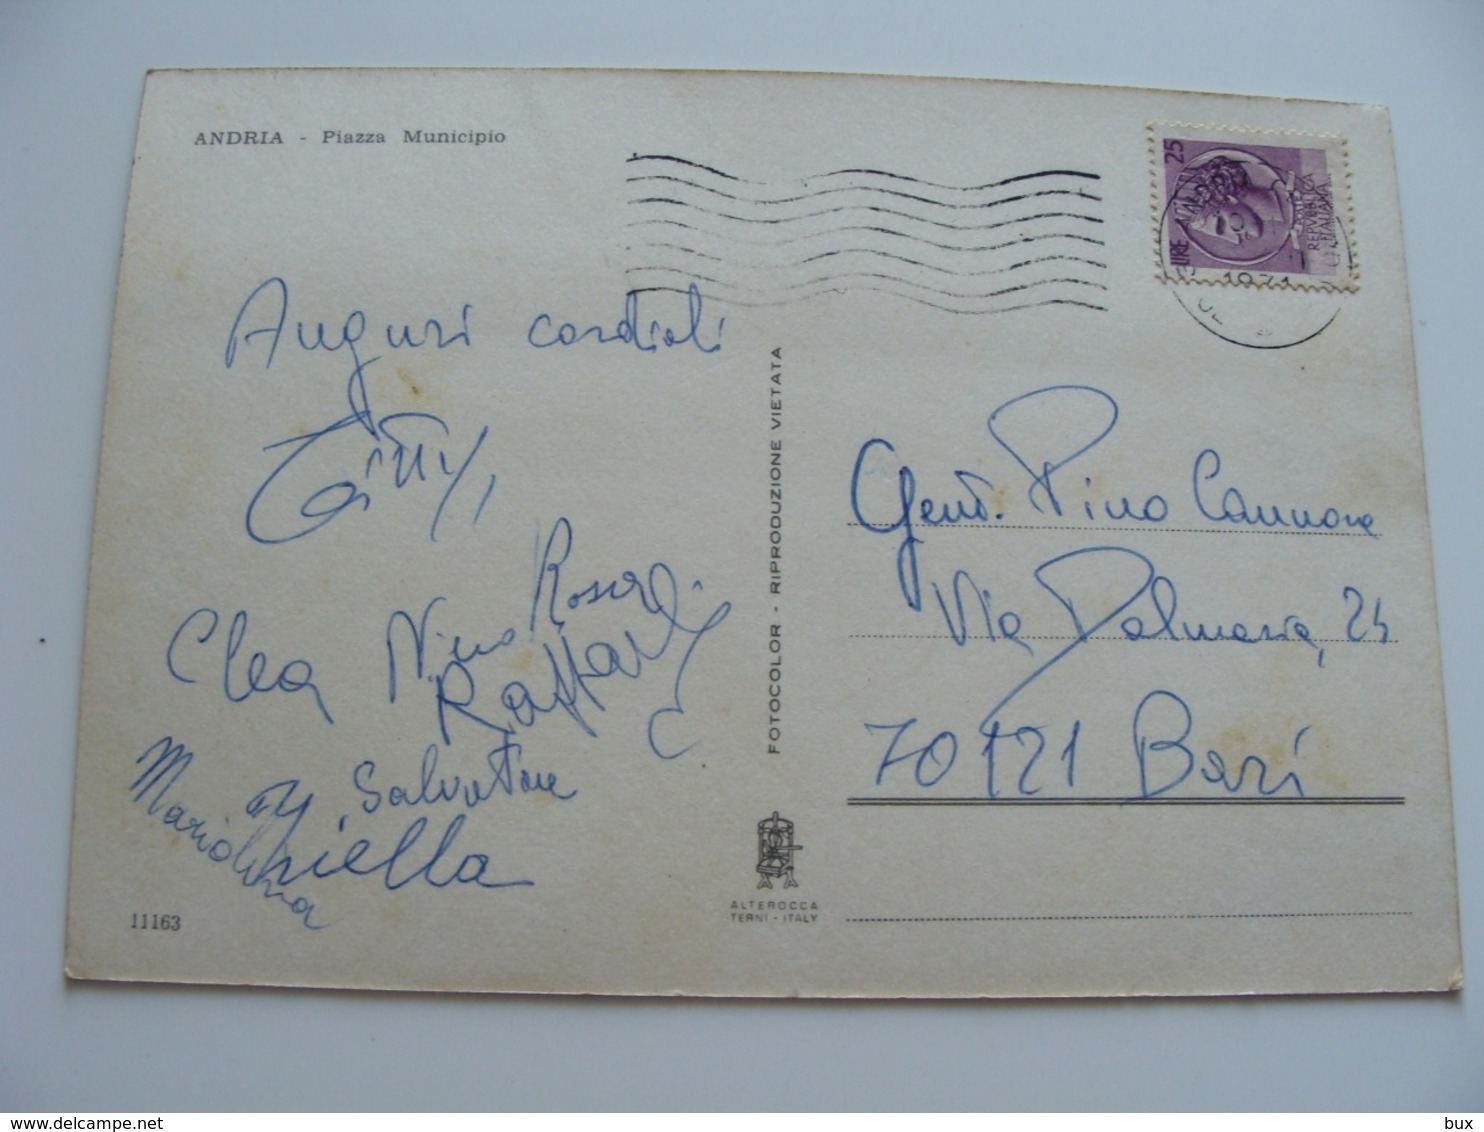 ANDRIA - Piazza Municipio
LIRE 25
REPVBBLICA
ITALIANA
1971
Auguri cordiali
Clea Nino Rosa
Raffaele
Salvatore
Mariolina
Gent. Pino Cannone
Via Dalmazia, 24
70121 Bari
FOTOCOLOR - RIPRODUZIONE VIETATA
ALTEROCCA
TERNI - ITALY
11163
delcampe.net
bux